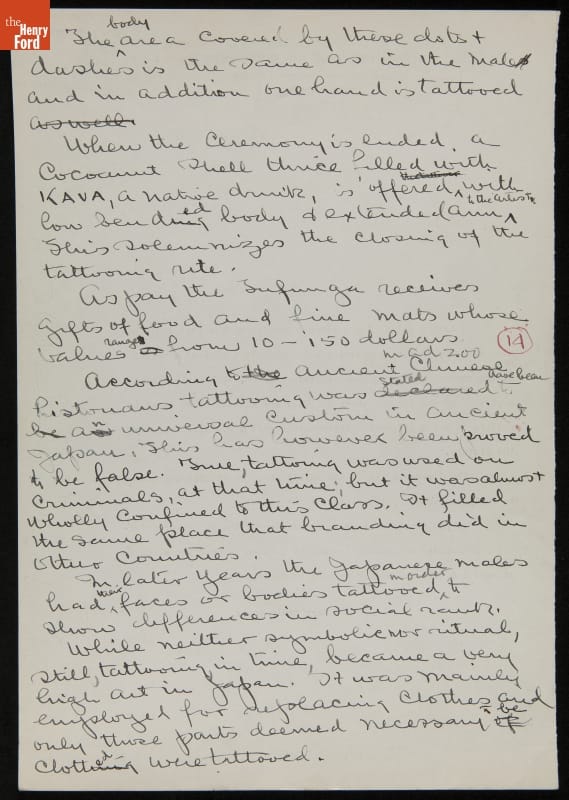 the
Henry
Ford
body
The area covered by these dots +
dashes is the same as in the males
and in addition one hand is tattooed
as well.
When the ceremony is ended, a
Cocoanut shell thrice filled with
KAVA, a native drink, is offered, with
to the artist
low bended body & extended arm
This solemnizes the closing of the
tattooing rite.
As pay the Tufunga receives
gifts of food and fine mats whose
values range from 10 - 150 dollars.
14
mad 200
According to the ancient Chinese
historians tattooing was stated to have been
be an universal custom in ancient
Japan. This has however been proved
to be false. True, tattooing was used on
Criminals, at that time, but it was almost
wholly confined to this class. It filled
the same place that branding did in
other countries.
In later years the Japanese males
had their faces or bodies tattooed, in order to
show differences in social rank.
While neither symbolic nor ritual,
still, tattooing in time, became a very
high art in Japan. It was mainly
employed for replacing clothes and
only those parts deemed necessary to be
clothed were tattooed.